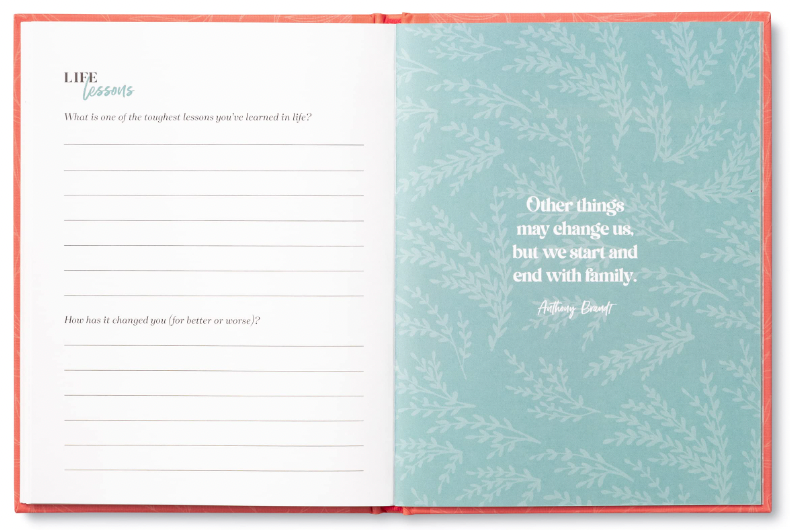 LIFE
lessons
What is one of the toughest lessons you've learned in life?
How has it changed you (for better or worse)?
Other things
may change us,
but we start and
end with family.
Anthony Brandt